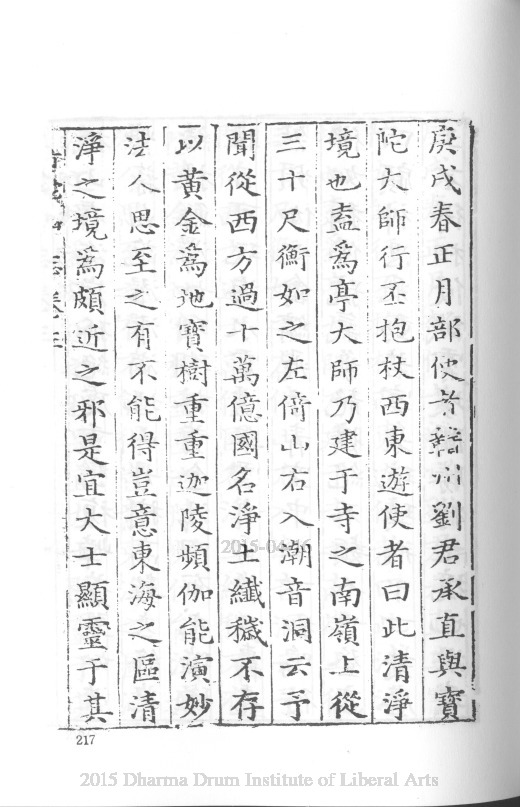 庚戌春正月部使者贛州劉君承直與寶
陀大師行丕抱杖西東遊使者曰此清淨
境也盍爲亭大師乃建于寺之南嶺上從
三十尺衡如之左倚山右入潮音洞云予
聞從西方過十萬億國名淨土纎穢不存
以黃金爲地寶樹重重迦陵頻伽能演妙
法人思至之有不能得豈意東海之區清
淨之境爲頗近之邪是宜大士顯靈于其
志卷三
217
2015-04-16
2015 Dharma Drum Institute of Liberal Arts